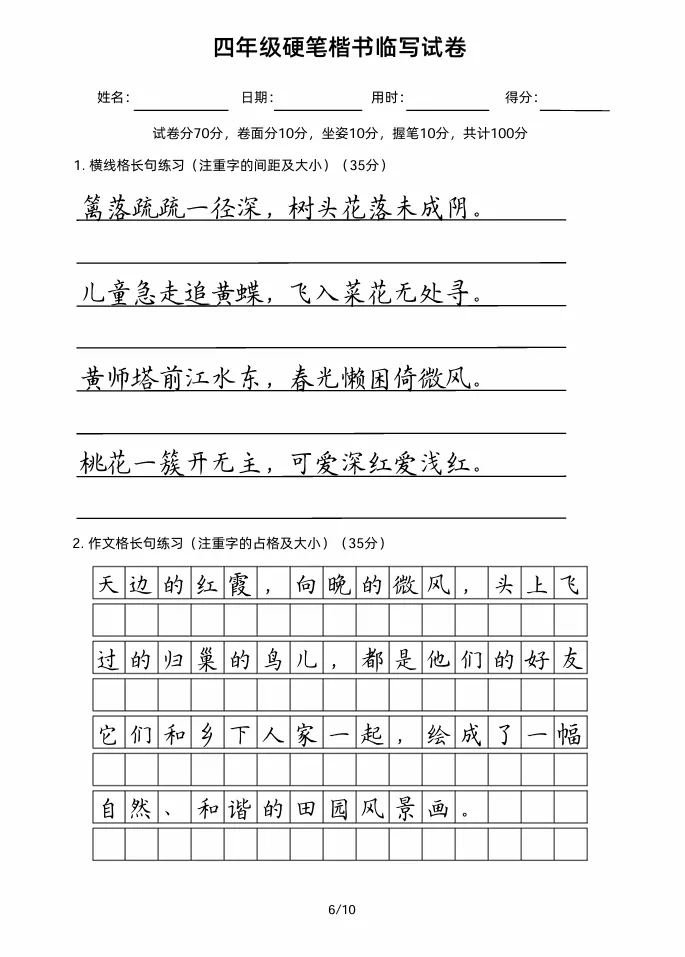 四年级硬笔楷书临写试卷
姓名： 日期： 用时： 得分：
试卷分70分，卷面分10分，坐姿10分，握笔10分，共计100分
1. 横线格长句练习（注重字的间距及大小）（35分）
篱落疏疏一径深，树头花落未成阴。
儿童急走追黄蝶，飞入菜花无处寻。
黄师塔前江水东，春光懒困倚微风。
桃花一簇开无主，可爱深红爱浅红。
2. 作文格长句练习（注重字的占格及大小）（35分）
天边的红霞，向晚的微风，头上飞
过的归巢的鸟儿，都是他们的好友
它们和乡下人家一起，绘成了一幅
自然、和谐的田园风景画。
6/10